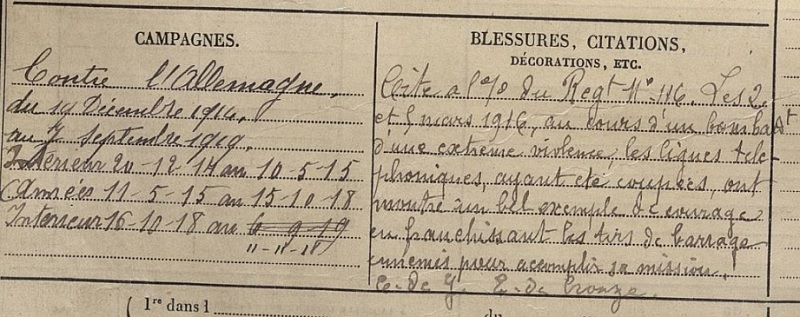 CAMPAGNES.
Contre l'Allemagne,
du 19 Décembre 1914,
au 7 Septembre 1919.
Intérieur 20-12-14 au 10-5-15
(Armées 11-5-15 au 15-10-18
Intérieur 16-10-18 au 6 9 19
11-11-18
BLESSURES, CITATIONS,
DÉCORATIONS, ETC.
Cité à l'o/o du Regt N° 116. Les 2
et 5 mars 1916, au cours d'un bombadt
d'une extreme violence, les lignes télé-
phoniques, ayant été coupées, ont
montré un bel exemple de courage
en franchissant les tirs de barrage
ennemis pour accomplir sa mission.
C. de g. E. de bronze.
(1re dans l
du